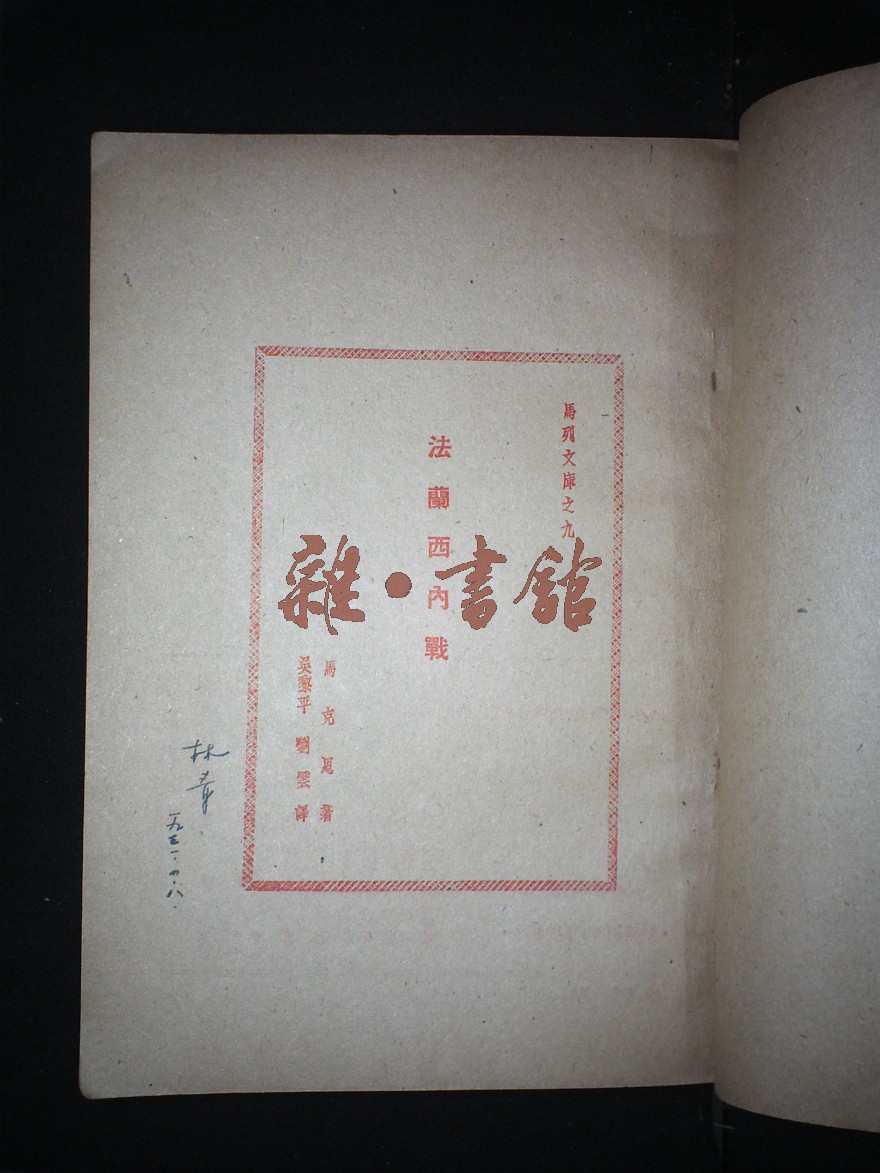 馬列文庫之九
法蘭西內戰
馬克思著
吳黎平 劉雲譯
雜·書館
林